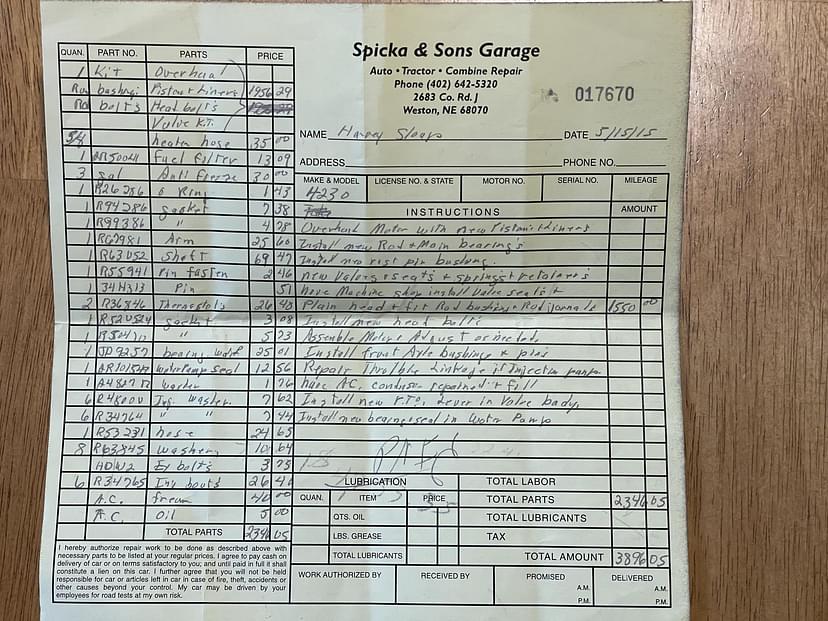 Spicka & Sons Garage
Auto • Tractor • Combine Repair
Phone (402) 642-5320
2683 Co. Rd. J
Weston, NE 68070
017670
NAME Harvey DATE 5/15/15
ADDRESS PHONE NO.
MAKE & MODEL LICENSE NO. & STATE MOTOR NO. SERIAL NO. MILEAGE
4230
INSTRUCTIONS AMOUNT
Overhaul Motor with new Piston & Liners
Install new Rod & Main bearings
Install new rist pin bushing.
new Valves & seats & springs & retainers
have Machine shop install Valve seats &
Plain head & fit Rod bushings Rod jornals 1550 00
Install new head bolts
Assemble Motor & Adjust as needed
Install front Axle bushings & pins
Repair Throttle Linkage if Injection pump
have A.C. condensor repained & fill
Install new P.T.O. Lever in Valve body,
Install new bearing seal in Water Pump
QUAN. PART NO. PARTS PRICE
1 Kit Overhaul
Rod bushings Piston & Liners 1956 29
Rod bolts Head bolts
Valve Kit.
heater hose 35 00
1 AR50041 Fuel Filter 13 09
3 gal Anti Freeze 30 00
1 R26286 O Ring 1 43
1 R94286 gasket 7 38
1 R99386 " 4 78
1 R67981 Arm 25 60
1 R63052 Shaft 69 47
1 R55941 Pin fasten 2 46
1 34H313 Pin 51
2 R36346 Thermostats 26 40
1 gasket 3 08
1 " 5 73
1 JP9257 bearing 25 01
1 Water Pump seal 12 56
1 Washer 1 76
6 Inj. Washer 7 62
6 R34764 " " 7 44
1 R53231 hose 24 65
8 R63845 washers 10 64
Ex bolts 3 75
6 R34765 Inj bouts 26 40
A.C. freon 40 00
A.C. oil 5 00
TOTAL PARTS 2346 05
LUBRICATION
QUAN. ITEM PRICE
QTS. OIL
LBS. GREASE
TOTAL LUBRICANTS
TOTAL LABOR
TOTAL PARTS 2346 05
TOTAL LUBRICANTS
TAX
TOTAL AMOUNT 3896 05
I hereby authorize repair work to be done as described above with
necessary parts to be listed at your regular prices. I agree to pay cash on
delivery of car or on terms satisfactory to you; and until paid in full it shall
constitute a lien on this car. I further agree that you will not be held
responsible for car or articles left in car in case of fire, theft, accidents or
other causes beyond your control. My car may be driven by your
employees for road tests at my own risk.
WORK AUTHORIZED BY RECEIVED BY PROMISED DELIVERED
A.M. A.M.
P.M. P.M.